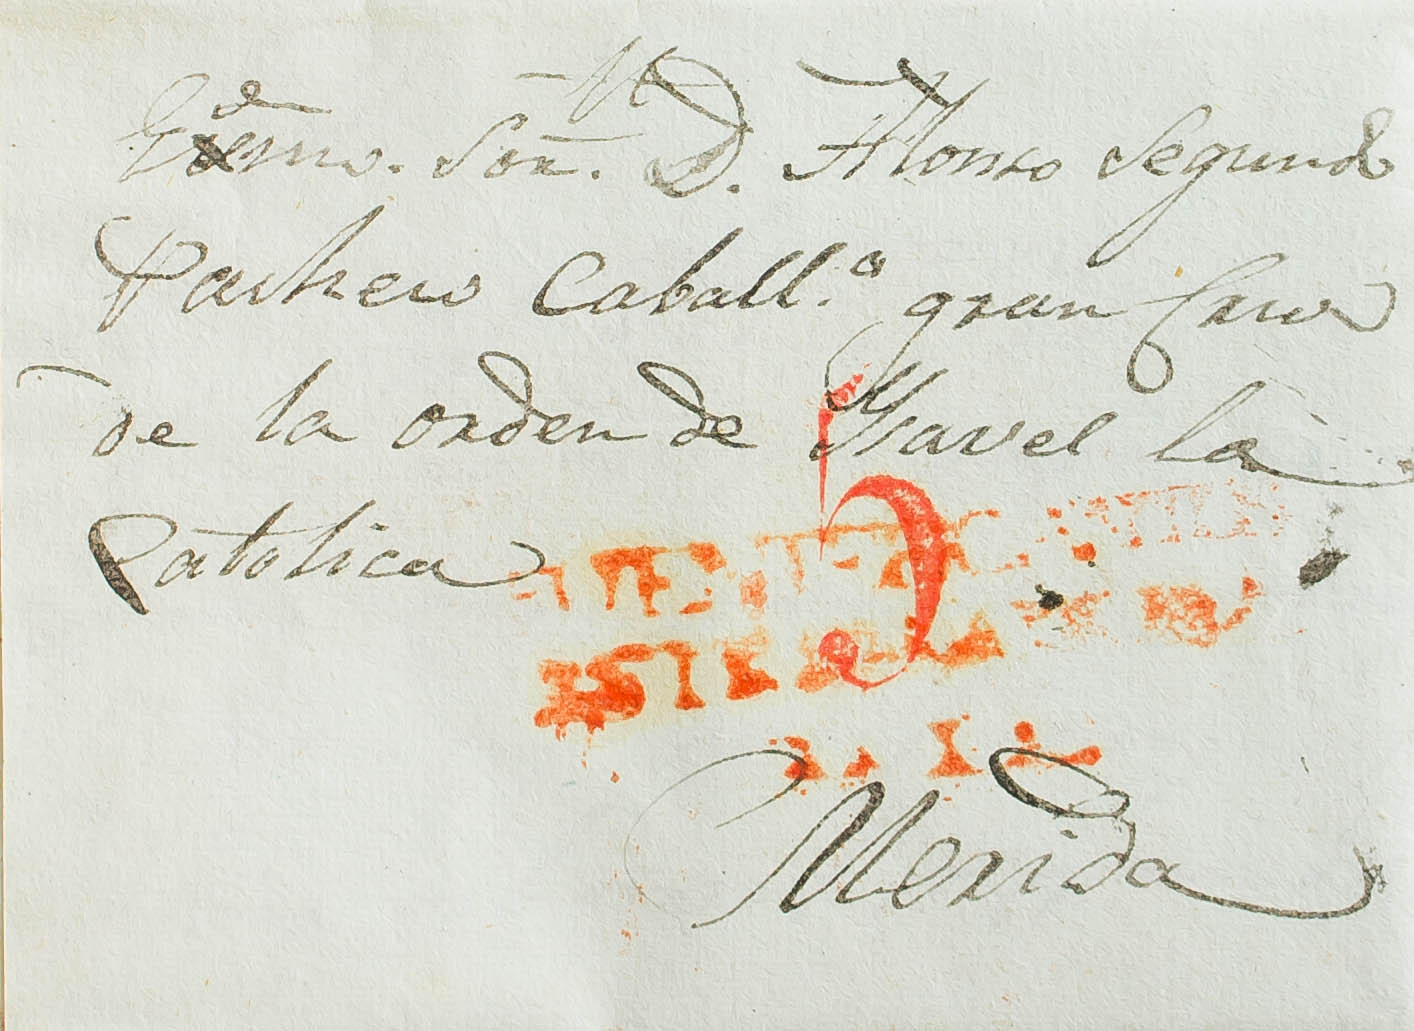 Exemo. Sor. D. Alonso Segundo
Pacheco Caball.o gran Cruz
de la orden de Ysavel la
Catolica
5
Merida